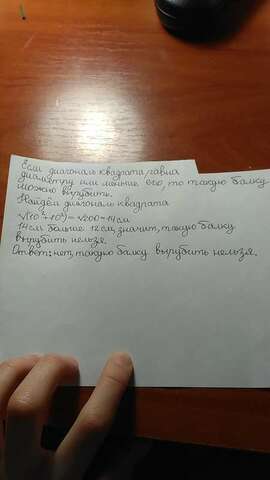 Если диагональ квадрата равна
диаметру или меньше его, то такую балку
можно вырубить.
Найдём диагональ квадрата
√(10²+10²)=√200≈14см
14см больше 12см, значит, такую балку
вырубить нельзя.
Ответ: нет, такую балку вырубить нельзя.